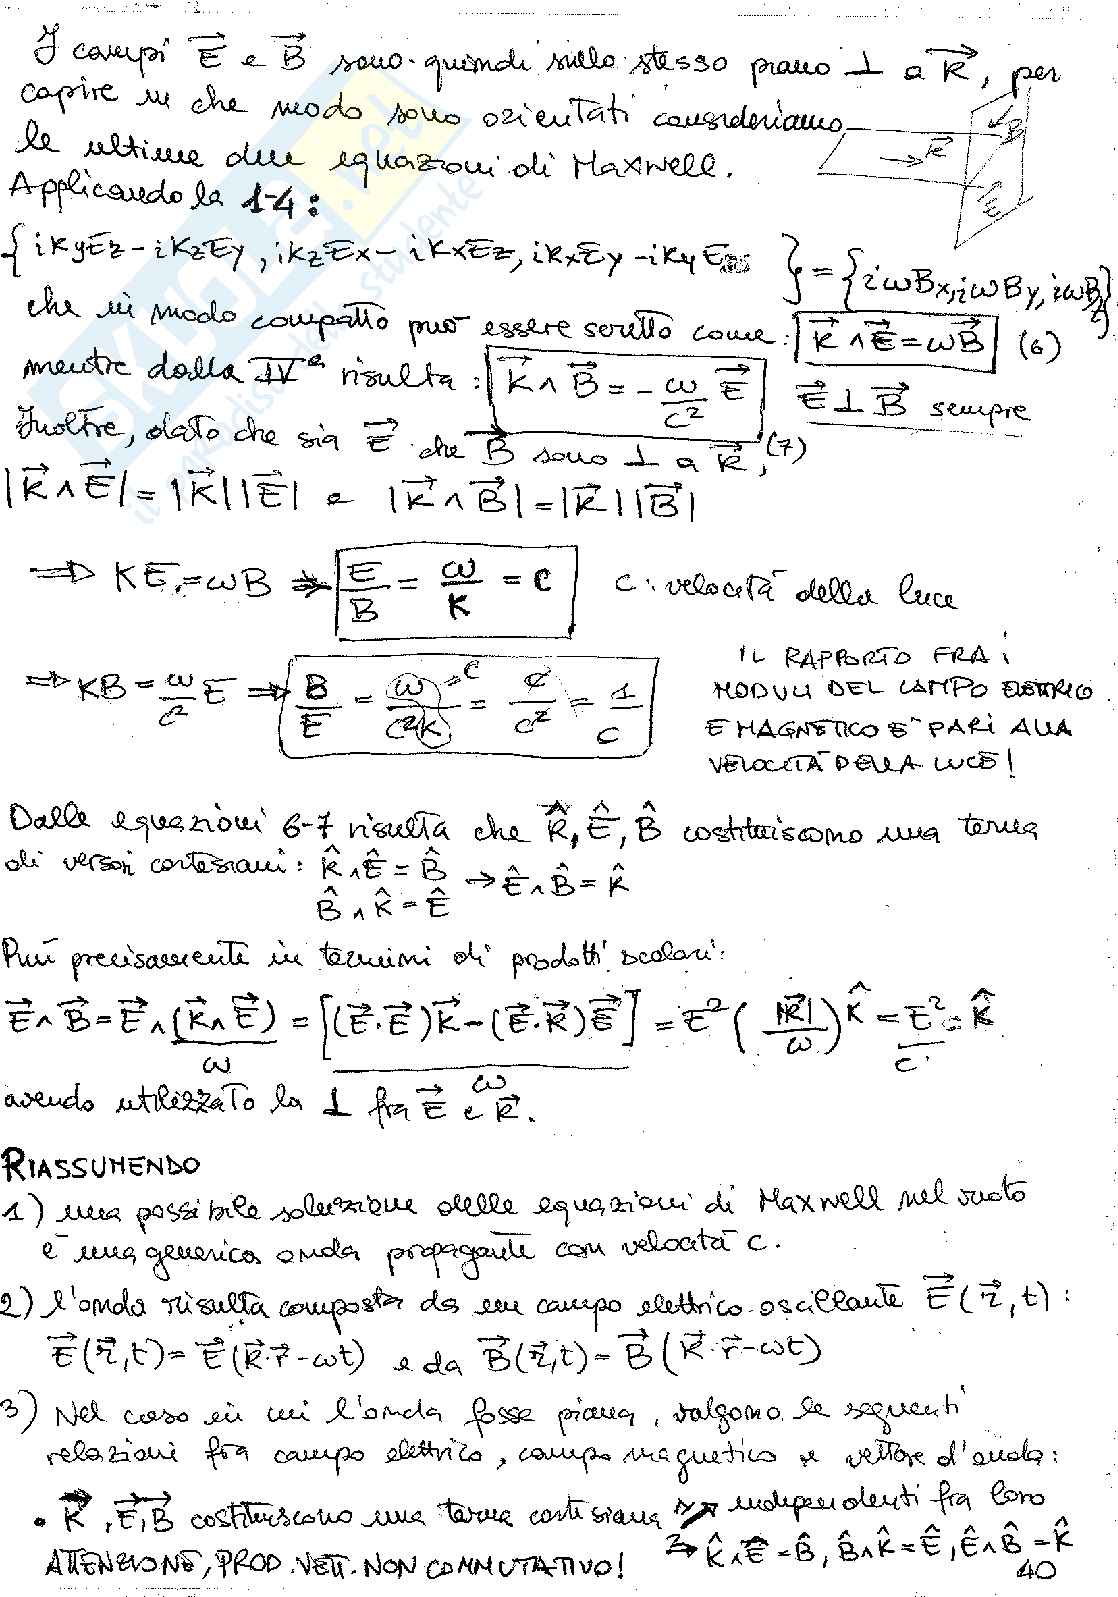 I campi E⃗ e B⃗ sono quindi sullo stesso piano ⊥ a K⃗, per
capire in che modo sono orientati consideriamo
le ultime due equazioni di Maxwell.
B⃗
K⃗
E⃗
Applicando la 1-4:
{iKyEz-iKzEy, iKzEx-iKxEz, iKxEy-iKyEx} = {iωBx, iωBy, iωBz}
che in modo compatto può essere scritto come: K⃗∧E⃗=ωB⃗ (6)
mentre dalla IVª risulta: K⃗∧B⃗=-ω/c² E⃗ (7) E⃗⊥B⃗ sempre
Inoltre, dato che sia E⃗ che B⃗ sono ⊥ a K⃗,
|K⃗∧E⃗|=|K⃗||E⃗| e |K⃗∧B⃗|=|K⃗||B⃗|
⇒ KE=ωB ⇒ E/B = ω/K = c c: velocità della luce
⇒ KB=ω/c² E ⇒ B/E = ω/c²K =c = c/c² = 1/c
IL RAPPORTO FRA i
MODULI DEL CAMPO ELETTRICO
E MAGNETICO E' PARI ALLA
VELOCITÀ DELLA LUCE!
Dalle equazioni 6-7 risulta che K̂, Ê, B̂ costituiscono una terna
di versori cartesiani: K̂∧Ê=B̂ → Ê∧B̂=K̂
B̂∧K̂=Ê
Più precisamente in termini di prodotti scalari:
E⃗∧B⃗=E⃗∧(K⃗∧E⃗)/ω = [(E⃗·E⃗)K⃗-(E⃗·K⃗)E⃗]/ω = E²(|K⃗|/ω)K̂ = E²/c K̂
avendo utilizzato la ⊥ fra E⃗ e K⃗.
RIASSUMENDO
1) una possibile soluzione delle equazioni di Maxwell nel vuoto
è una generica onda propagante con velocità c.
2) l'onda risulta composta da un campo elettrico oscillante E⃗(r⃗,t):
E⃗(r⃗,t)=E⃗(K⃗·r⃗-ωt) e da B⃗(r⃗,t)=B⃗(K⃗·r⃗-ωt)
3) Nel caso in cui l'onda fosse piana, valgono le seguenti
relazioni fra campo elettrico, campo magnetico e vettore d'onda:
• K⃗, E⃗, B⃗ costituiscono una terna cartesiana indipendenti fra loro
⇒ K̂∧Ê=B̂, B̂∧K̂=Ê, Ê∧B̂=K̂
ATTENZIONE, PROD. VETT. NON COMMUTATIVO!
40